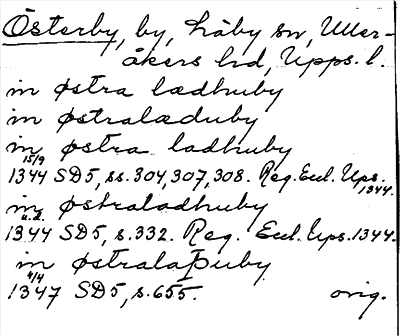 Österby, by, Läby sn, Uller-
åkers hd, Upps. l.
in østra lædhuby
in østralæduby
in østra ladhuby
15/9
1344 SD5, ss. 304, 307, 308. Reg. Eccl. Ups. 1344.
in østraladhuby
u.d.
1344 SD5, s. 332. Reg. Eccl. Ups. 1344.
in østralaþuby
4/4
1347 SD5, s. 655. orig.